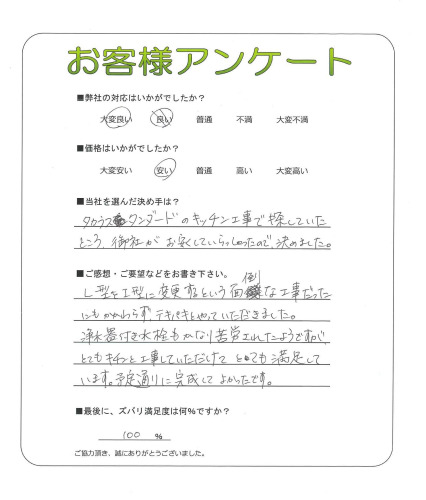 お客様アンケート
■弊社の対応はいかがでしたか？
大変良い 良い 普通 不満 大変不満
■価格はいかがでしたか？
大変安い 安い 普通 高い 大変高い
■当社を選んだ決め手は？
タカラスタンダードのキッチン工事で探していた
ところ、御社がお安くしていらっしゃったので、決めました。
■ご感想・ご要望などをお書き下さい。
L型をI型に変更するという面倒な工事だった
にもかかわらず、テキパキとやっていただきました。
浄水器付き水栓もかなり苦労されたようですが、
とてもキチンと工事していただけて とても満足して
います。予定通りに完成して よかったです。
■最後に、ズバリ満足度は何%ですか？
100 %
ご協力頂き、誠にありがとうございました。